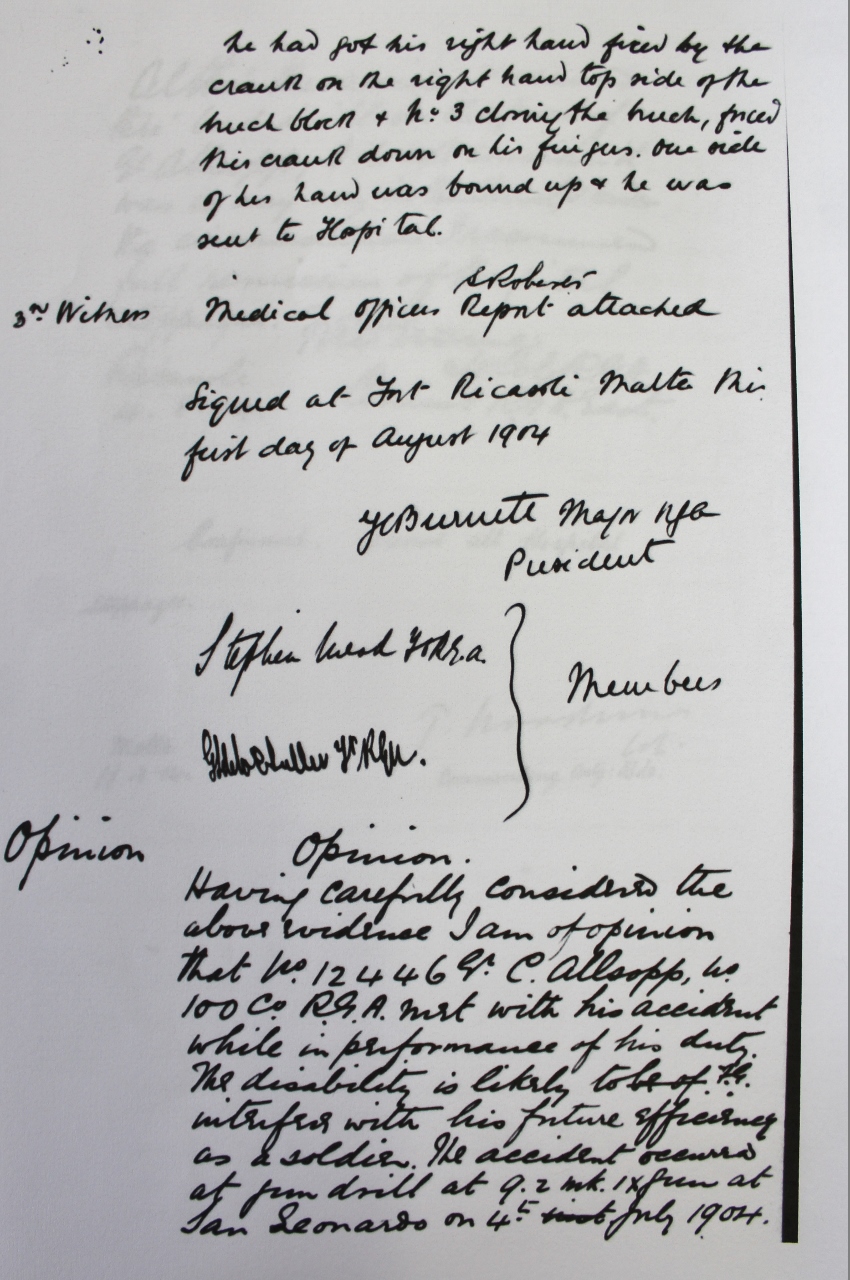 he had got his right hand fixed by the
crank on the right hand top side of the
breech block & No 3 closing the breech, forced
this crank down on his fingers. One side
of his hand was bound up & he was
sent to Hospital.
S Roberts
3rd Witness Medical officers Report attached
Signed at Fort Ricasoli Malta this
first day of August 1904
Burnett Major RGA
President
Stephen Lt RGA
Members
Lt RGA.
Opinion Opinion.
Having carefully considered the
above evidence I am of opinion
that No. 12446 Gr. C. Allsopp, No.
100 Co R.G.A. met with his accident
while in performance of his duty.
The disability is likely to
interfere with his future efficiency
as a soldier. The accident occurred
at gun drill at 9.2 mk. IX gun at
San Leonardo on 4th inst July 1904.